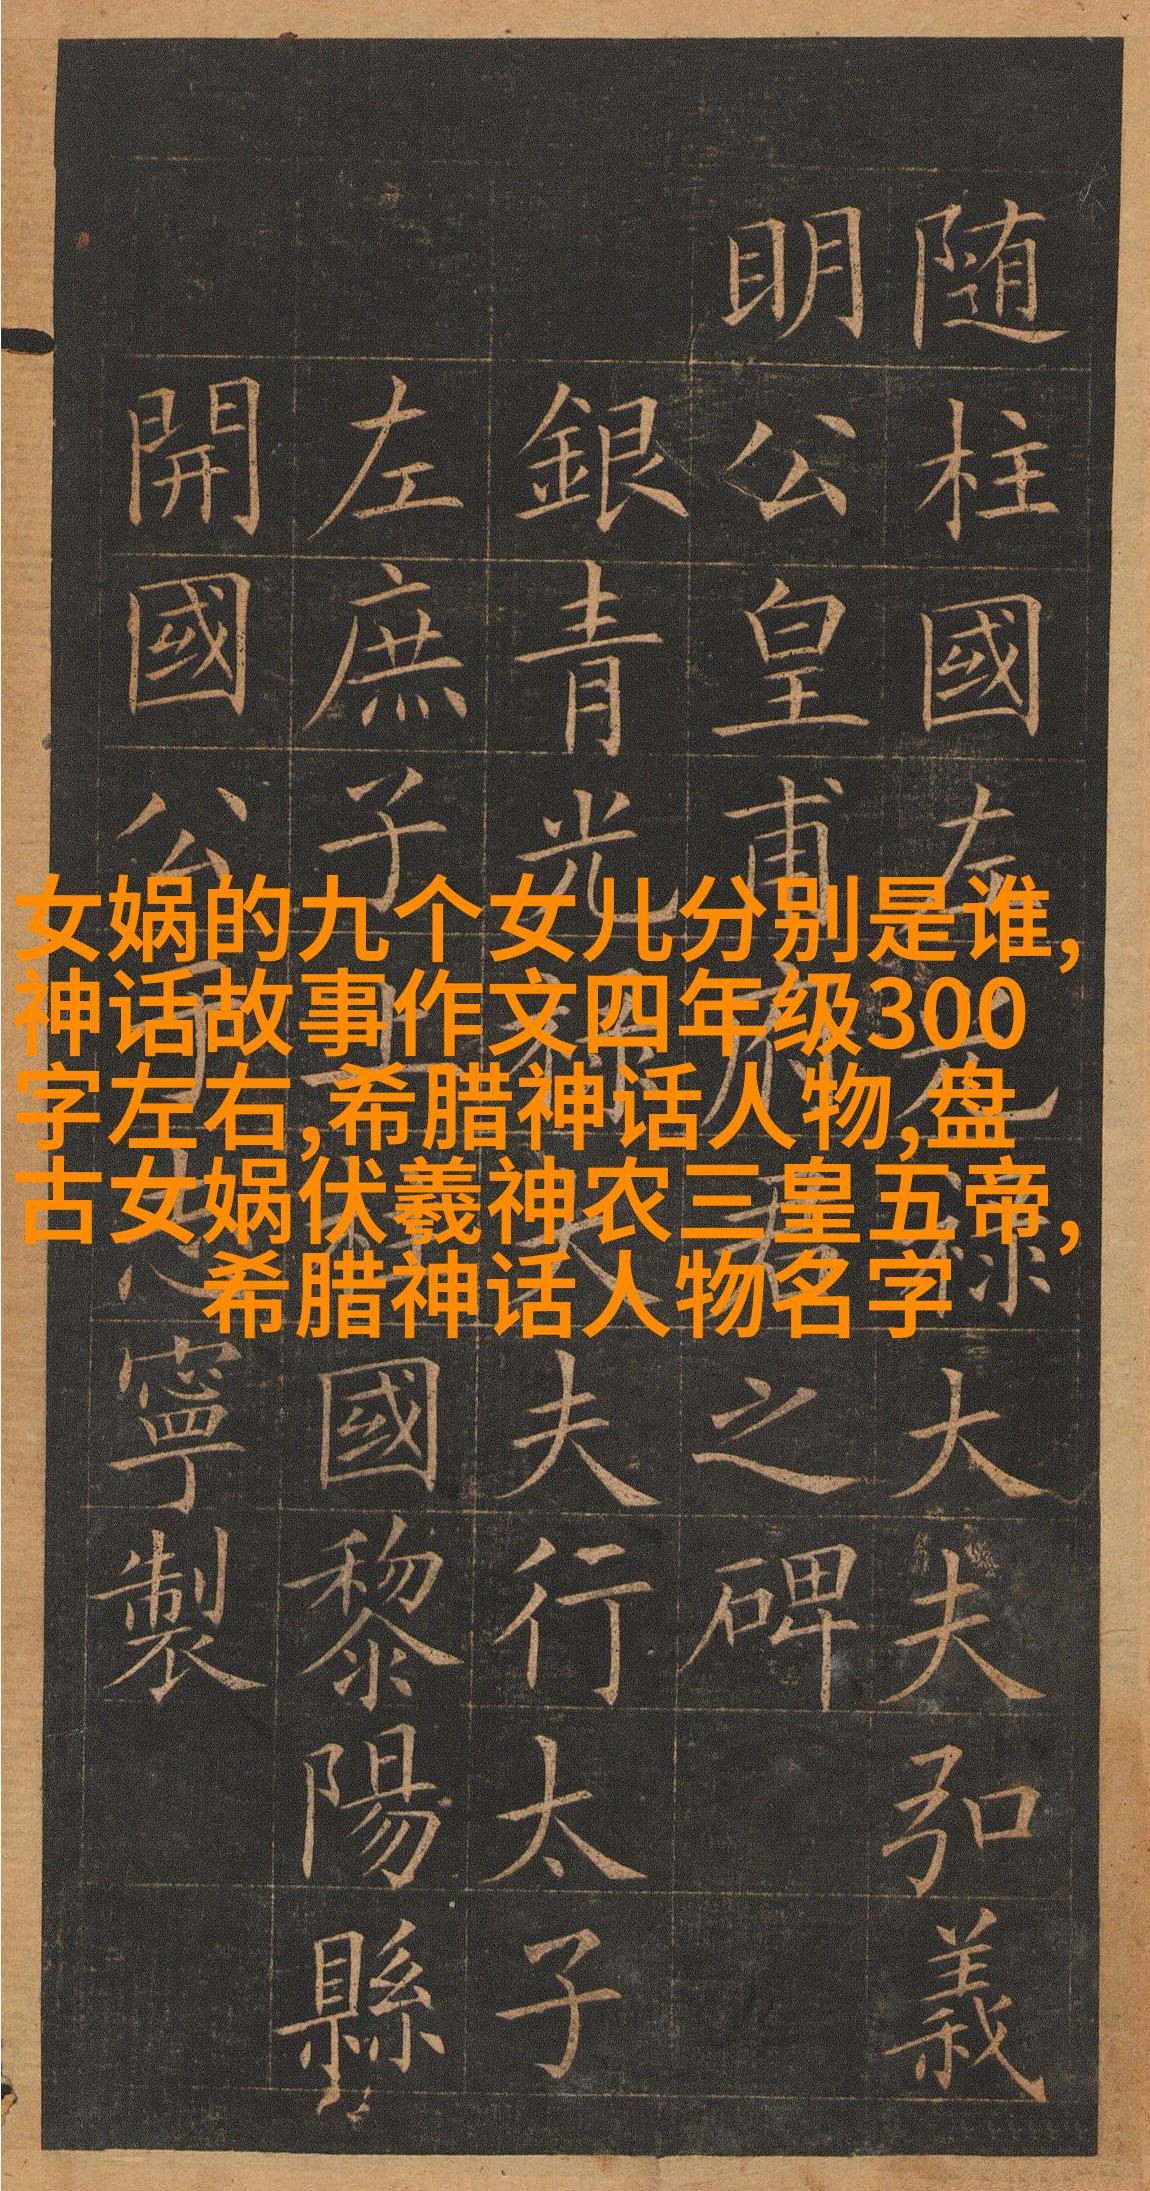 随柱國左光禄大夫弘義
明公皇甫府君之碑
銀青光禄大夫行太子
左庶子上柱國黎陽縣
開國公于志寧製
女娲的九个女儿分别是谁,
神话故事作文四年级300
字左右,希腊神话人物,盘
古女娲伏羲神农三皇五帝,
希腊神话人物名字